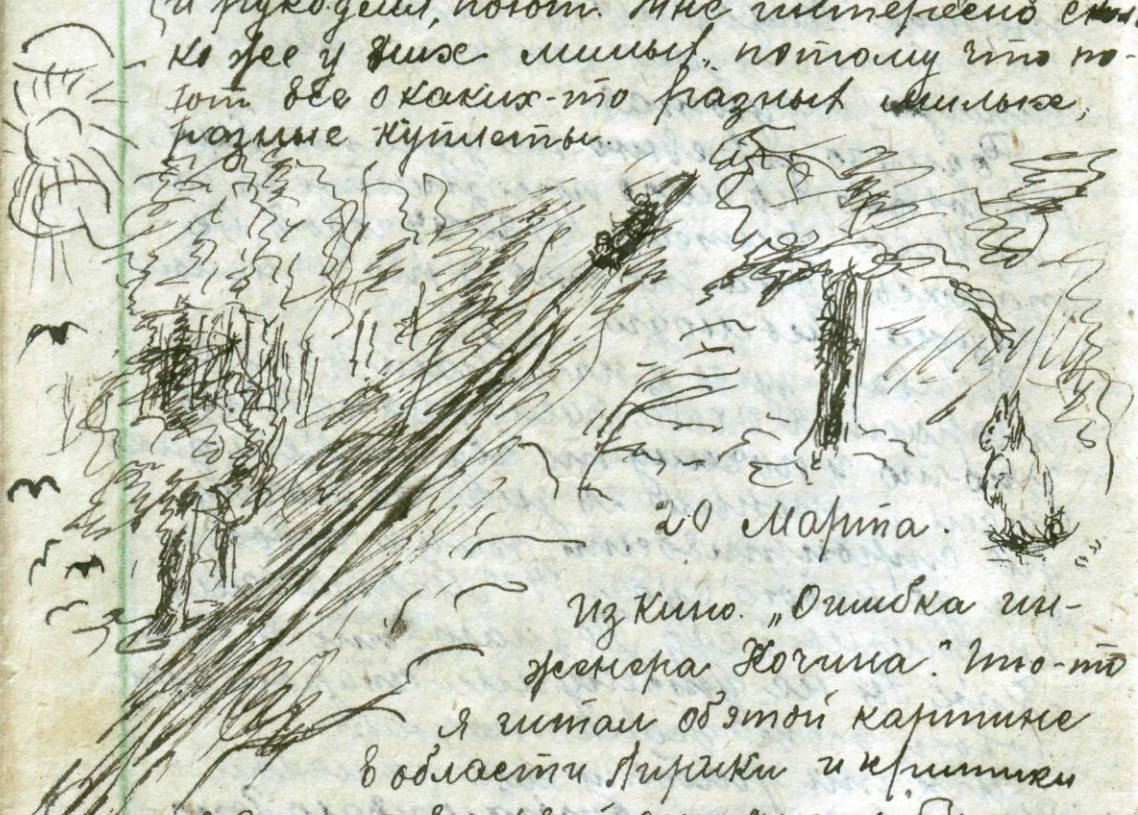 и рукоделия, поют. Мне интересно сколь-
ко же у них милых, потому что по-
ют все о каких-то разных милых,
разные куплеты
20 Марта.
Из кино. „Ошибка ин-
женера Кочина". Что-то
я читал об этой картине
в области лирики и критики